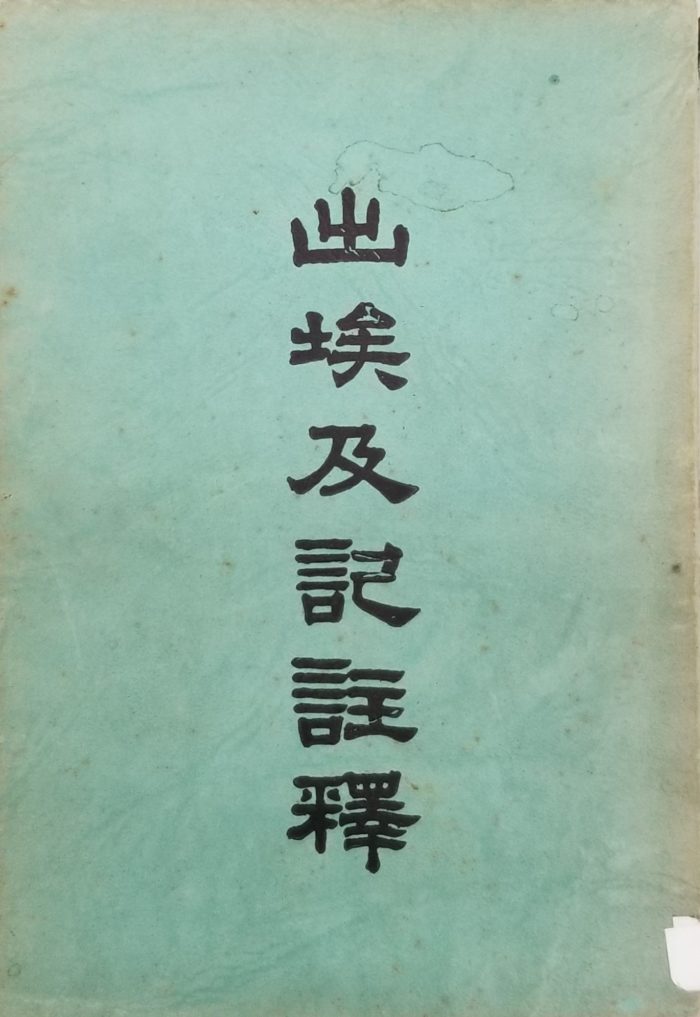 出埃及記註釋